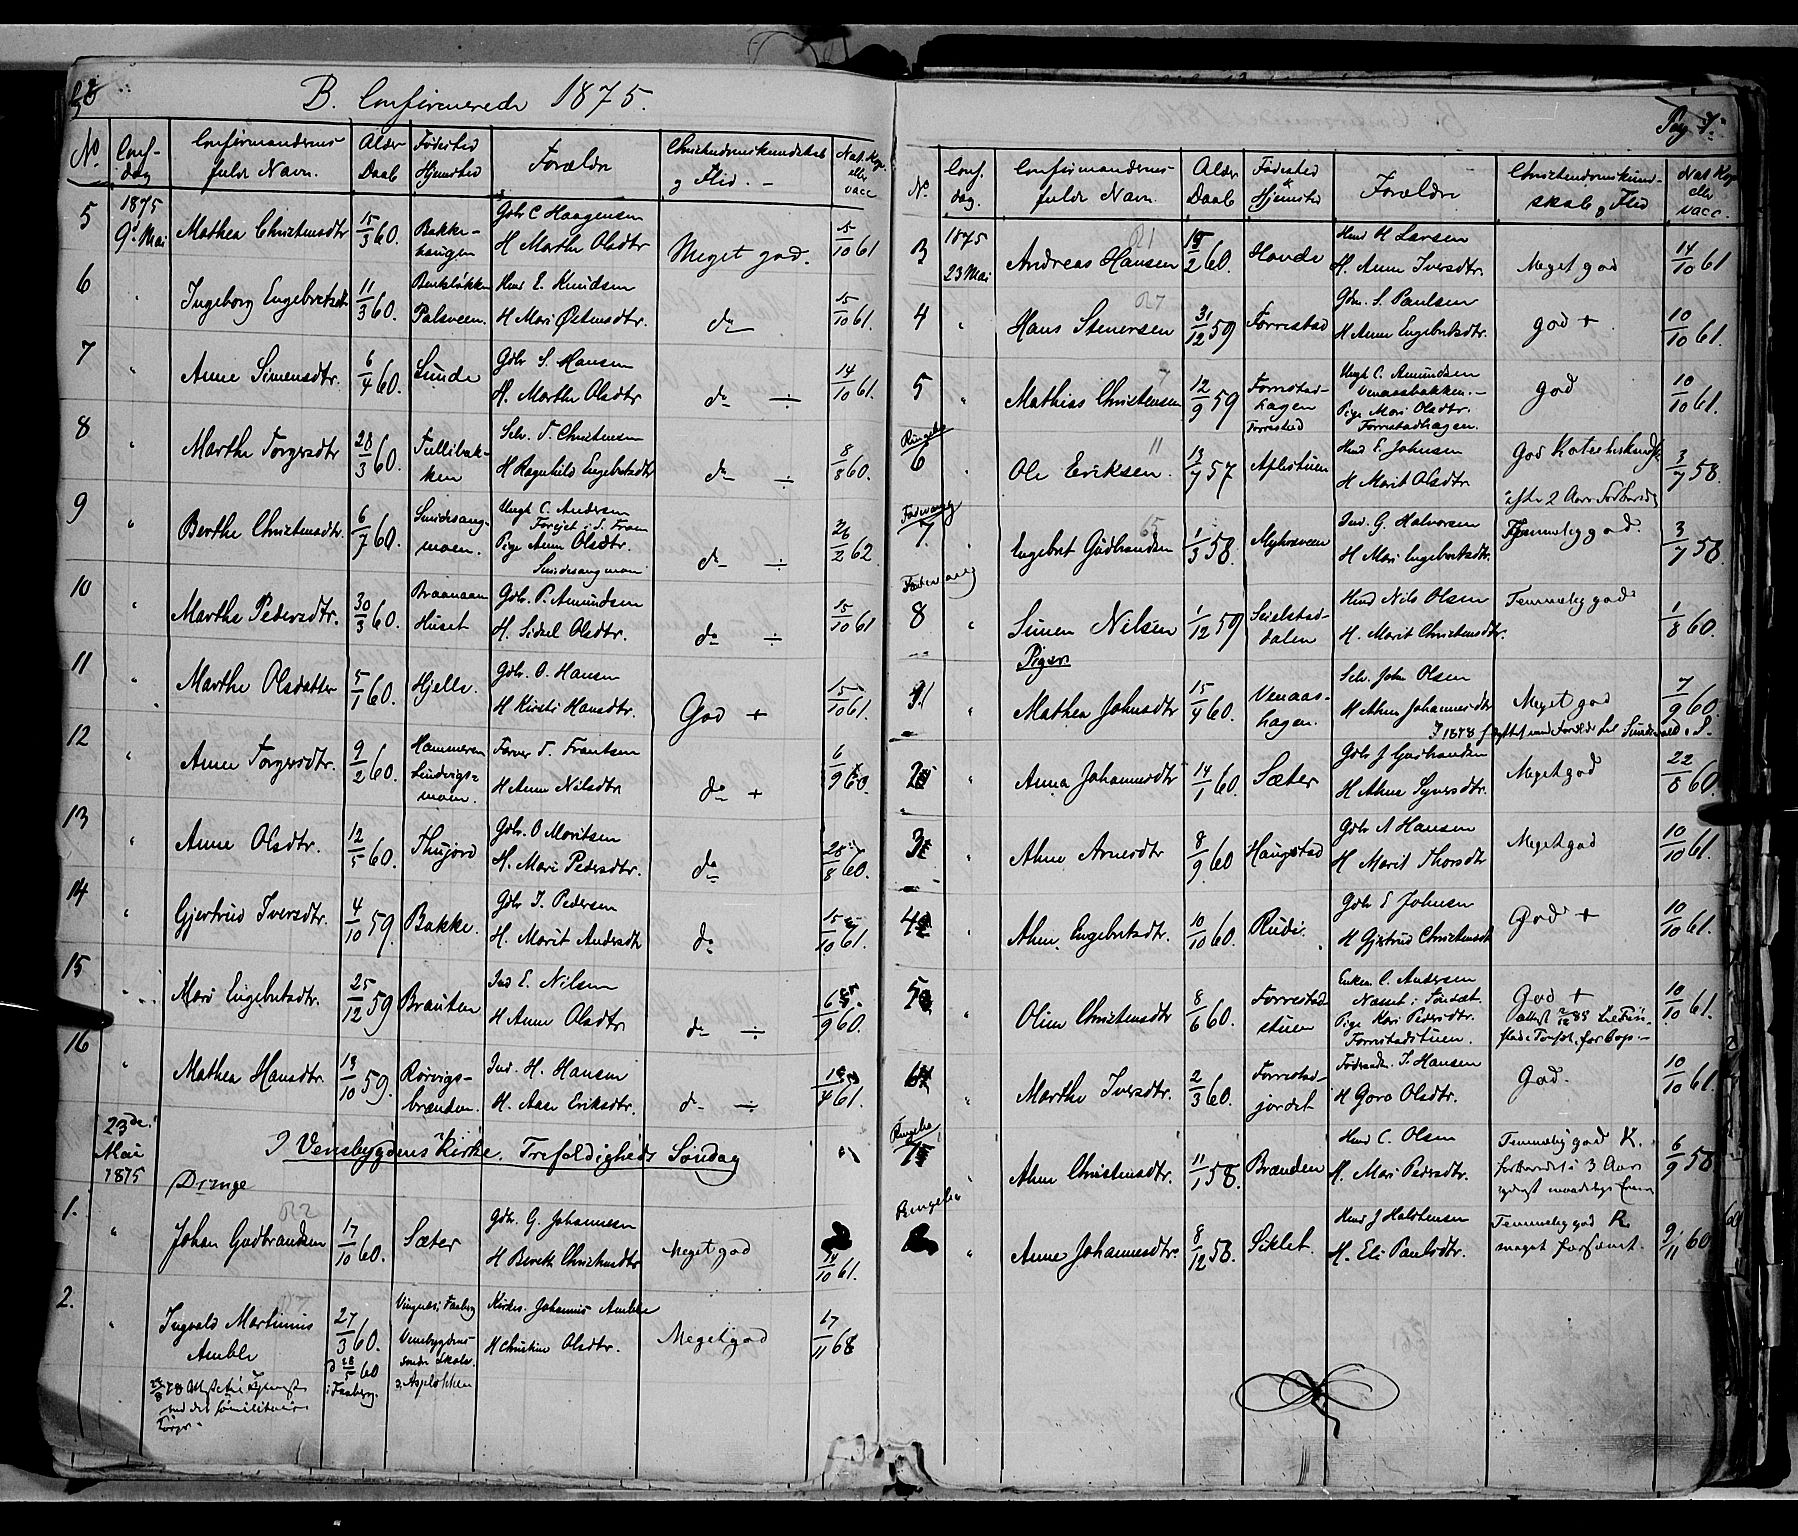 B. Confirmerede 1875.
No. Conf-dag Confirmandernes fulde Navn. Alder Daab Fødested Hjemsted Forældre Christendomskundskab og Flid. Nat. Kop. eller vacc
5 1875 9de Mai Mathea Christensdtr 15/3 60. Bakke-haugen Gdbr C Haagensen H Marthe Olsdtr Meget god. 15/10 61
6 " Ingeborg Engebretsdtr 11/3 60. Palsveen. Hmd E. Knudsen H Mari Østensdtr. do 15/10 61.
7 " Anne Simensdtr. 6/4 60. Sunde Gdbr S. Hansen H. Marthe Olsdtr do ÷ 14/10 61
8 " Marthe Torgersdtr 28/3 60. Tullibak-ken Selv. T. Christensen H Ragnhild Engebretsdtr do ÷ 8/8 60.
9 " Berthe Christensdtr 6/7 60. Sundesang-moen. Ungk C. Andersen Forejet i S. Fron Pige Anne Olsdtr. Sundesangmoen do ÷ 26/2 62
10 " Marthe Pedersdtr. 30/3 60. Braanaan Huset Gdbr. P. Amundsen H. Sidsel Olsdtr. do ÷ 15/10 61
11 " Marthe Olsdatter 5/1 60. Hjelle. Gdbr. O. Hansen H Kirsti Hansdtr. God + 15/10 61.
12 " Anne Torgersdtr. 9/2 60. Hammeren Lindvigs-moen. Farver T. Frantsen H Anne Nilsdtr do + 6/9 60.
13 " Anne Olsdtr. 12/5 60. Thujord Gdbr. O Moritsen H. Mari Pedersdtr. do 28/8 60.
14 " Gjertrud Iversdtr. 4/10 59. Bakke. Gdbr I. Pedersen H. Marit Andersdtr do 15/10 61.
15 " Mari Engebretsdtr. 25/12 59 Brauten Ind E. Nilsen H Anne Olsdtr do ÷ 6/9 60.
16 " Mathea Hansdtr. 13/10 59. Rørvigs-brænden. Ind. H. Hansen H. Aase Eriksdtr. do ÷ 18/4 61.
23de Mai 1875 I Vensbygdens Kirke. Trefoldigheds Søndag
Drenge
1. " Johan Gudbrandsen 17/10 60. Sæter Gdbr. G. Johannesen H Berethe Christensdtr Meget god 14/10 61.
2. " Ingvald Martinius Amble 27/3 60. D 28/5 60 i Faaberg. Vingnes i Faaberg Venebygdens søndre Skole Asplokken Kirkes. Johannes Amble H Christine Olsdtr. Meget god 17/11 68
Pag 7.
No. Conf. dag. Confirmandernes fulde Navn. Alder Daab Fødested & Hjemsted Forældre Christendomskund-skab og Flid Nat. Kop eller vacc.
3 1875 23 Mai Andreas Hansen 15/2 60. Hovde Hmd H Larsen H. Anne Iversdtr. Meget god 14/10 61
4 " Hans Stenersen 31/12 59 Forrestad Gdm. S. Paulsen H Anne Engebretsdtr god + 10/10 61.
5 " Mathias Christensen 12/9 59 Forrestad-hagen Forrestad Ungk C. Amundsen Venaasbakken. Pige Mari Olsdtr. Forrestadhagen. god 10/10 61.
Ringebo 6 " Ole Eriksen 13/7 57 Aplistuen Hmd E. Johnsen H Marit Olsdtr God efter 2 Aars 3/7 58.
Fodvang 7. " Engebret Gudbrandsen 1/3 58. Myhrveen Ind. G. Halvorsen H Mari Engebretsdtr. Temmelig god. 3/7 58.
8 " Simen Nilsen 1/12 59 Seielstad-dalen Hmd Nils Olsen H. Marit Christensdtr. Temmelig god. 1/8 60.
Piger.
1 Mathea Johnsdtr 15/4 60. Venaas-hagen. Selv. John Olsen H Athne Johannesdtr Meget god 7/9 60.
I 1878 flyttet med Forældre til
2 " Anna Johannesdtr 14/1 60. Sæter Gdbr J Gudbrandsen H Athne Syversdtr. Meget god 22/8 60.
3 " Athne Arnesdtr 8/9 60 Haugstad Gdbr A Hansen H Marit Thorsdtr Meget god 10/10 61.
4 " Athne Engebretsdtr. 10/10 60. Rudi Gdbr E Johnsen H Gjertrud Christensdtr God + 10/10 61.
5 " Oline Christensdtr 8/6 60. Forrestad-stuen Enkem. C. Andersen Næsset i Forsæt. Pige Kari Pedersdtr. Forrestadstuen. God + 10/10 61.
6 " Marthe Iversdtr. 2/3 60. Forrestad-jordet I. Hansen H Goro Olsdtr. God. 10/10 61.
Ringebo 7 " Athne Christensdtr. 11/1 58. Brænden Hmd C. Olsen H. Mari Pedersdtr. Temmelig god K. forberedt i 3 Aar 6/9 58
Ringebo " Anne Johannesdtr. 8/12 58. Siklet. Hmd J Halstensen H. Eli Paulsdtr. Temmelig god K. meget forsømt. 9/11 60.